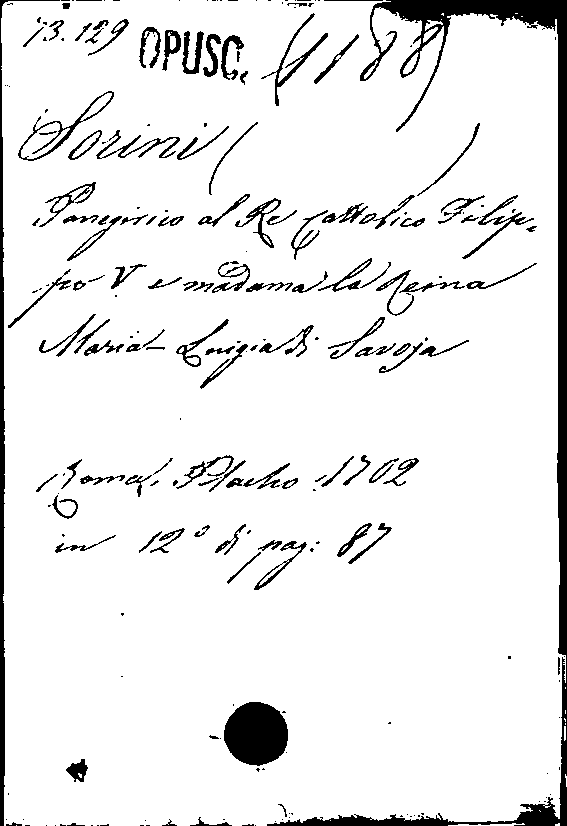 73.129 OPUSC. (1188)
Sorini ( )
Panegirico al Re Cattolico Filip-
po V e madama la Reina
Maria Luigia di Savoja
Roma, Placho 1702
in 12° di pag: 87